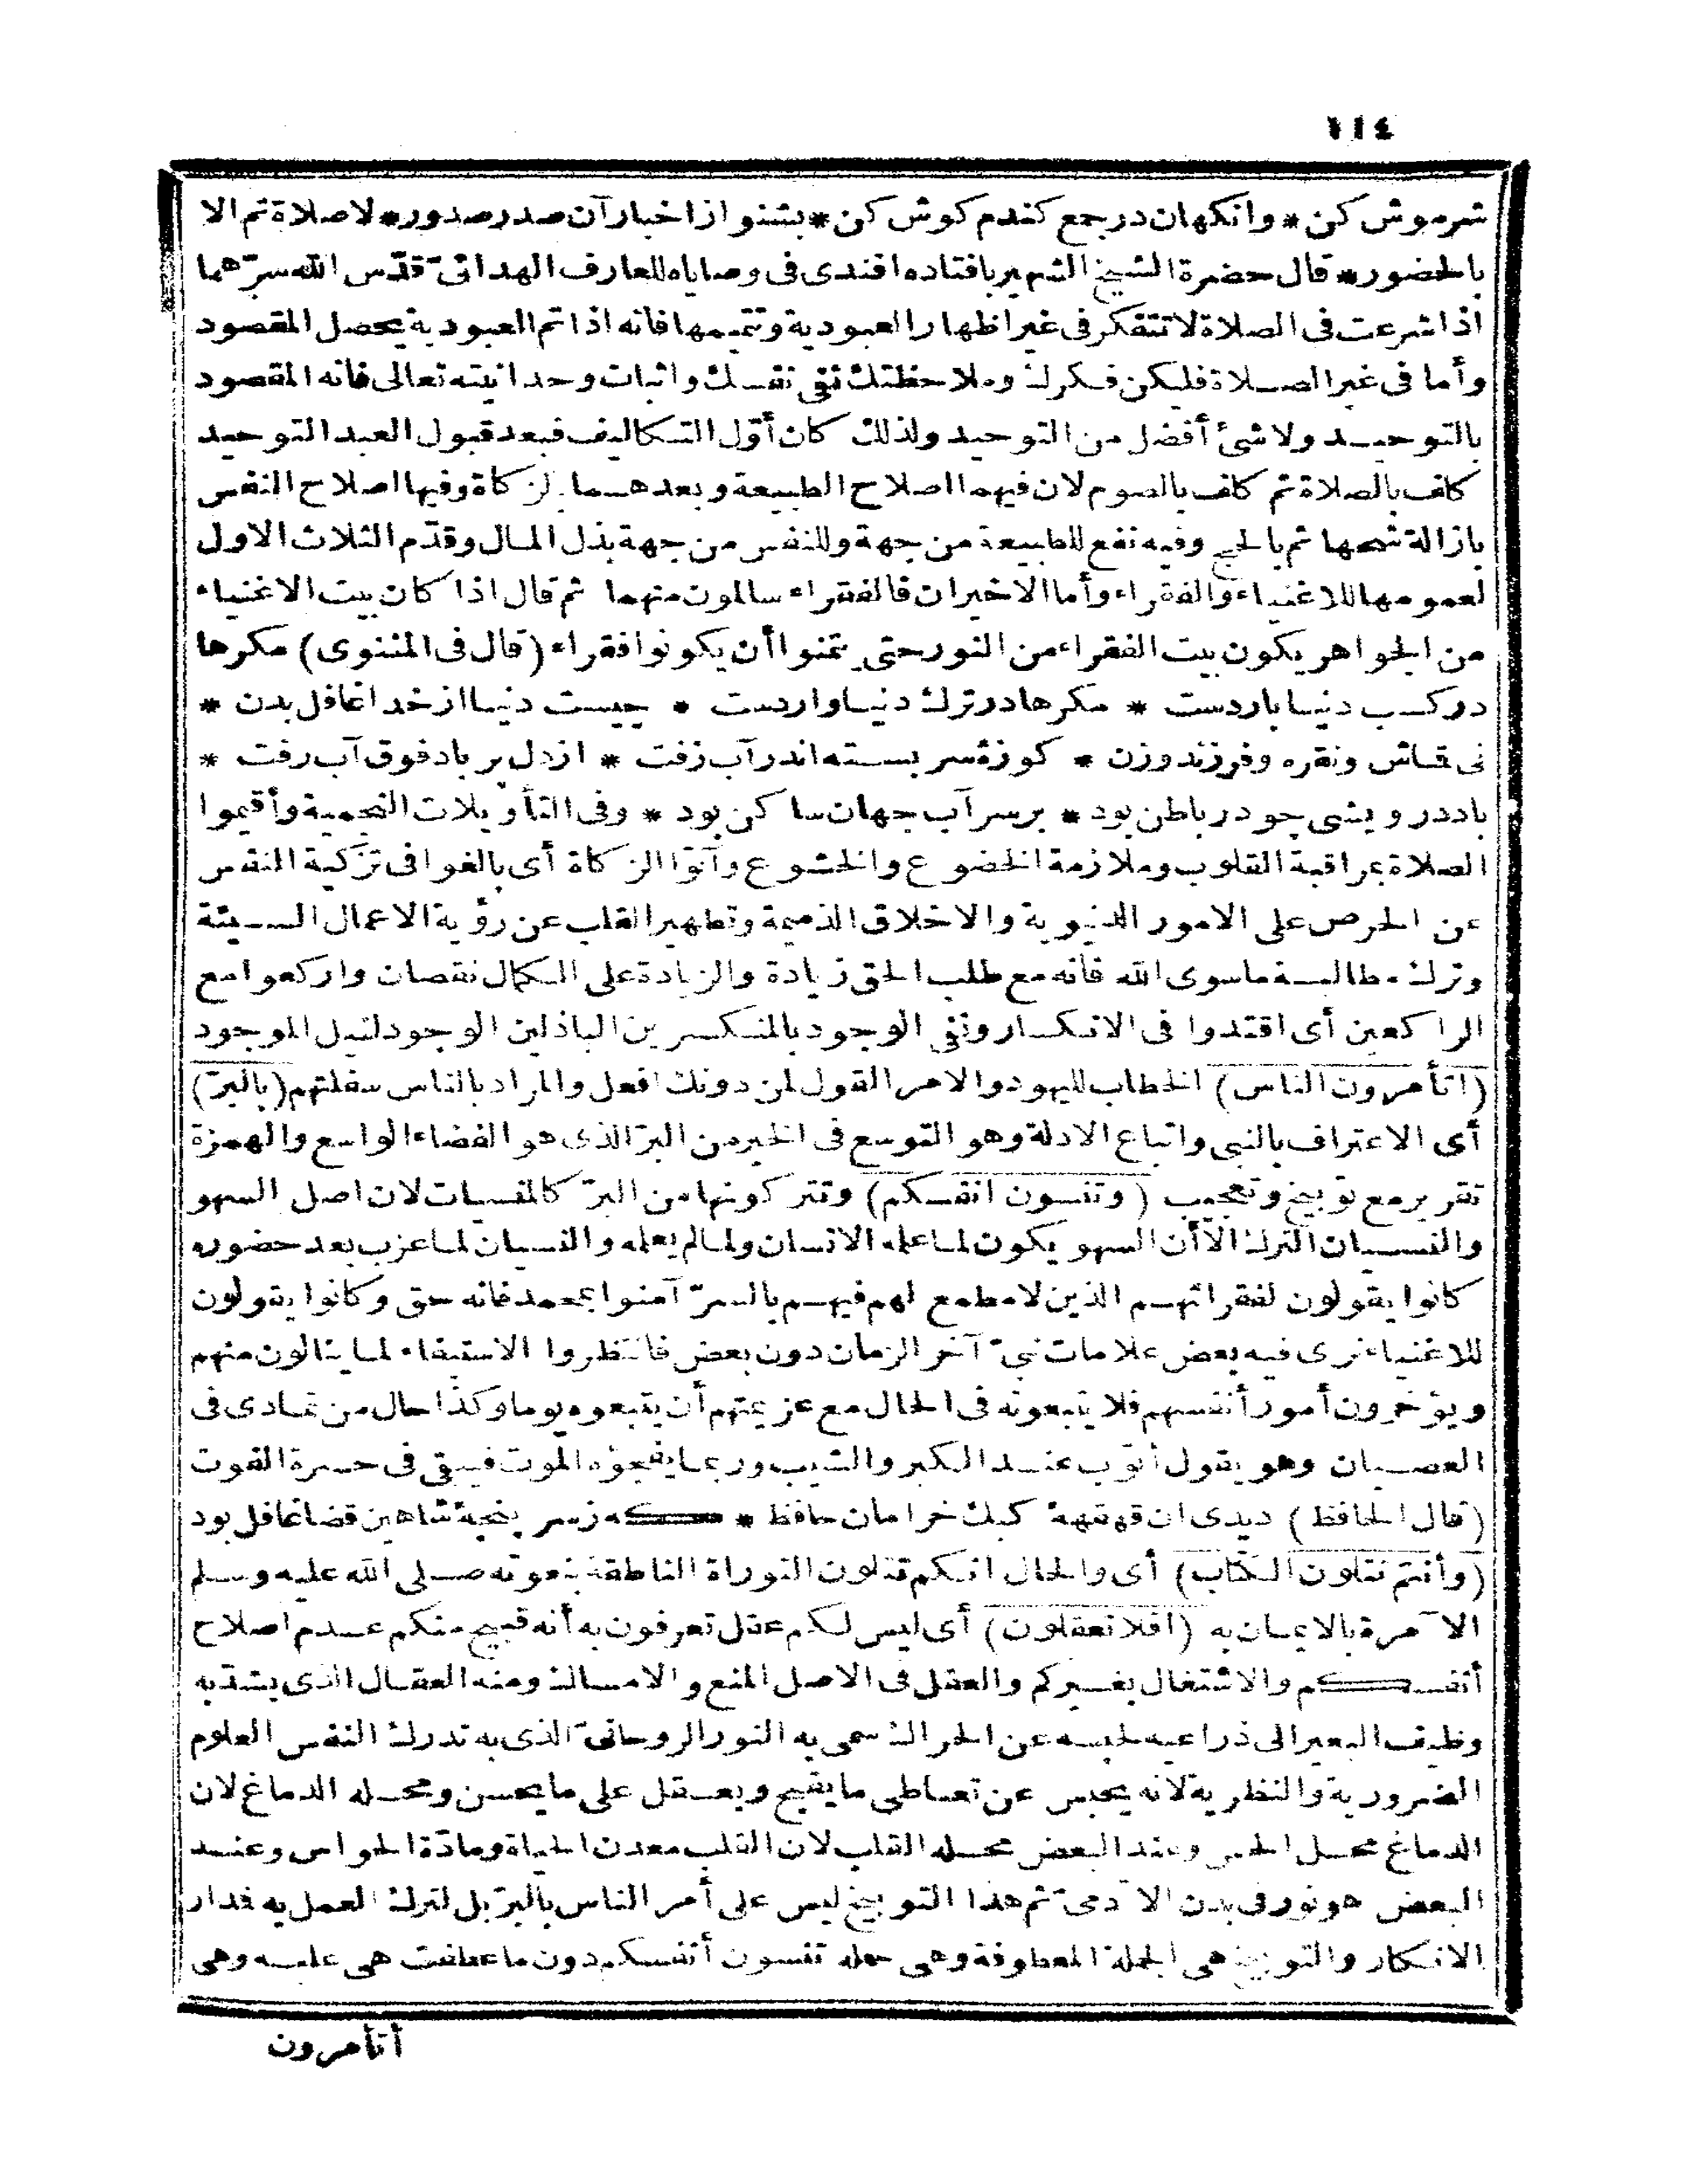 ١١٤
شرموش كن * وانكهان درجمع كندم كوش كن * بشنو از اخبار آن صدر صدور * لا صلاة تم الا
بالحضور * قال حضرة الشيخ الشهير بافتاده افندى فى وصاياه للعارف الهدائى قدّس الله سرّهما
اذا شرعت فى الصلاة لا تتفكر فى غير اظهار العبودية وتتميمها فانه اذا تم العبودية يحصل المقصود
وأما فى غير الصلاة فليكن فكرك وملاحظتك نفى نفسك واثبات وحدانيته تعالى فانه المقصود
بالتوحيد ولا شئ أفضل من التوحيد ولذلك كان أوّل التكاليف فبعد قبول العبد التوحيد
كلف بالصلاة ثم كلف بالصوم لان فيهما اصلاح الطبيعة وبعدهما الزكاة وفيها اصلاح النفس
بازالة شحها ثم بالحج وفيه نفع للطبيعة من جهة وللنفس من جهة بذل المال وقدّم الثلاث الاول
لعمومها للاغنياء والفقراء وأما الاخيران فالفقراء سالمون منهما ثم قال اذا كان بيت الاغنياء
من الجواهر يكون بيت الفقراء من النور حتى يتمنوا أن يكونوا فقراء (قال فى المثنوى) مكرها
در كسب دنيا باردست * مكرها در ترك دنيا واردست * چيست دنيا از خدا غافل بدن *
نى قماش ونقره وفرزند وزن * كوزۀ سر بسته اندر آب زفت * از دل پر باد فوق آب رفت *
باد درويشى چو در باطن بود * بر سر آب جهان ساكن بود * وفى التأويلات النجمية وأقيموا
الصلاة بمراقبة القلوب وملازمة الخضوع والخشوع وآتوا الزكاة أى بالغوا فى تزكية النفس
عن الحرص على الامور الدنيوية والاخلاق الذميمة وتطهير القلب عن رؤية الاعمال السيئة
وترك مطالبة ما سوى الله فانه مع طلب الحق زيادة والزيادة على الكمال نقصان واركعوا مع
الراكعين أى اقتدوا فى الانكسار ونفى الوجود بالمنكسرين الباذلين الوجود لنيل الموجود
(اتأمرون الناس) الخطاب لليهود والامر القول لمن دونك افعل والمراد بالناس سفلتهم (بالبرّ)
أى الاعتراف بالنبى واتباع الادلة وهو التوسع فى الخير من البرّ الذى هو الفضاء الواسع والهمزة
تقرير مع توبيخ وتعجيب (وتنسون انفسكم) وتتركونها من البرّ كالمنسيات لان اصل السهو
والنسيان الترك الا أن السهو يكون لما علمه الانسان ولما لم يعلمه والنسيان لما عزب بعد حضوره
كانوا يقولون لفقرائهم الذين لا مطمع لهم فيهم بالسرّ آمنوا بمحمد فانه حق وكانوا يقولون
للاغنياء نرى فيه بعض علامات نبىّ آخر الزمان دون بعض فانتظروا الاستيفاء لما ينالون منهم
ويؤخرون أمور أنفسهم فلا يتبعونه فى الحال مع عزيمتهم أن يتبعوه يوما وكذا حال من تمادى فى
العصيان وهو يقول أتوب عند الكبر والشيب وربما يفجؤه الموت فيبقى فى حسرة الفوت
(قال الحافظ) ديدى ان قهقهۀ كبك خرامان حافظ * كه ز سر پنجۀ شاهين قضا غافل بود
(وأنتم تتلون الكتاب) أى والحال انكم تتلون التوراة الناطقة بنعوته صلى الله عليه وسلم
الآمرة بالايمان به (افلا تعقلون) أى ليس لكم عقل تعرفون به أنه قبيح منكم عدم اصلاح
أنفسكم والاشتغال بغيركم والعقل فى الاصل المنع والامساك ومنه العقال الذى يشدّ به
وظيف البعير الى ذراعيه لحبسه عن الحراك سمى به النور الروحانىّ الذى به تدرك النفس العلوم
الضرورية والنظرية لانه يحبس عن تعاطى ما يقبح ويعقل على ما يحسن ومحله الدماغ لان
الدماغ محل الحس وعند البعض محله القلب لان القلب معدن الحياة ومادّة الحواس وعند
البعض هو نور فى بدن الآدمىّ ثم هذا التوبيخ ليس على أمر الناس بالبرّ بل لترك العمل به فدار
الانكار والتوبيخ هى الجملة المعطوفة وهى جملة تنسون أنفسكم دون ما عطفت هى عليه وهى
أتأمرون